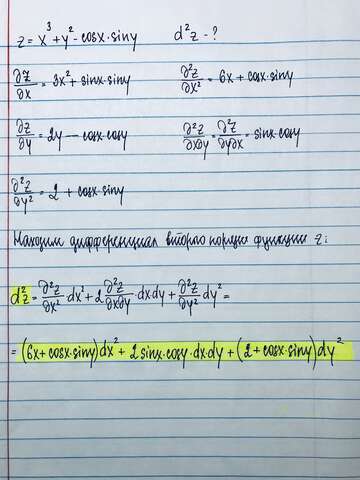 z = x³ + y² - cosx·siny d²z - ?
∂z/∂x = 3x² + sinx·siny ∂²z/∂x² = 6x + cosx·siny
∂z/∂y = 2y - cosx·cosy ∂²z/∂x∂y = ∂²z/∂y∂x = sinx·cosy
∂²z/∂y² = 2 + cosx·siny
Находим дифференциал второго порядка функции z:
d²z = ∂²z/∂x² · dx² + 2 ∂²z/∂x∂y · dxdy + ∂²z/∂y² dy² =
= (6x + cosx·siny)dx² + 2sinx·cosy·dx·dy + (2 + cosx·siny)dy²